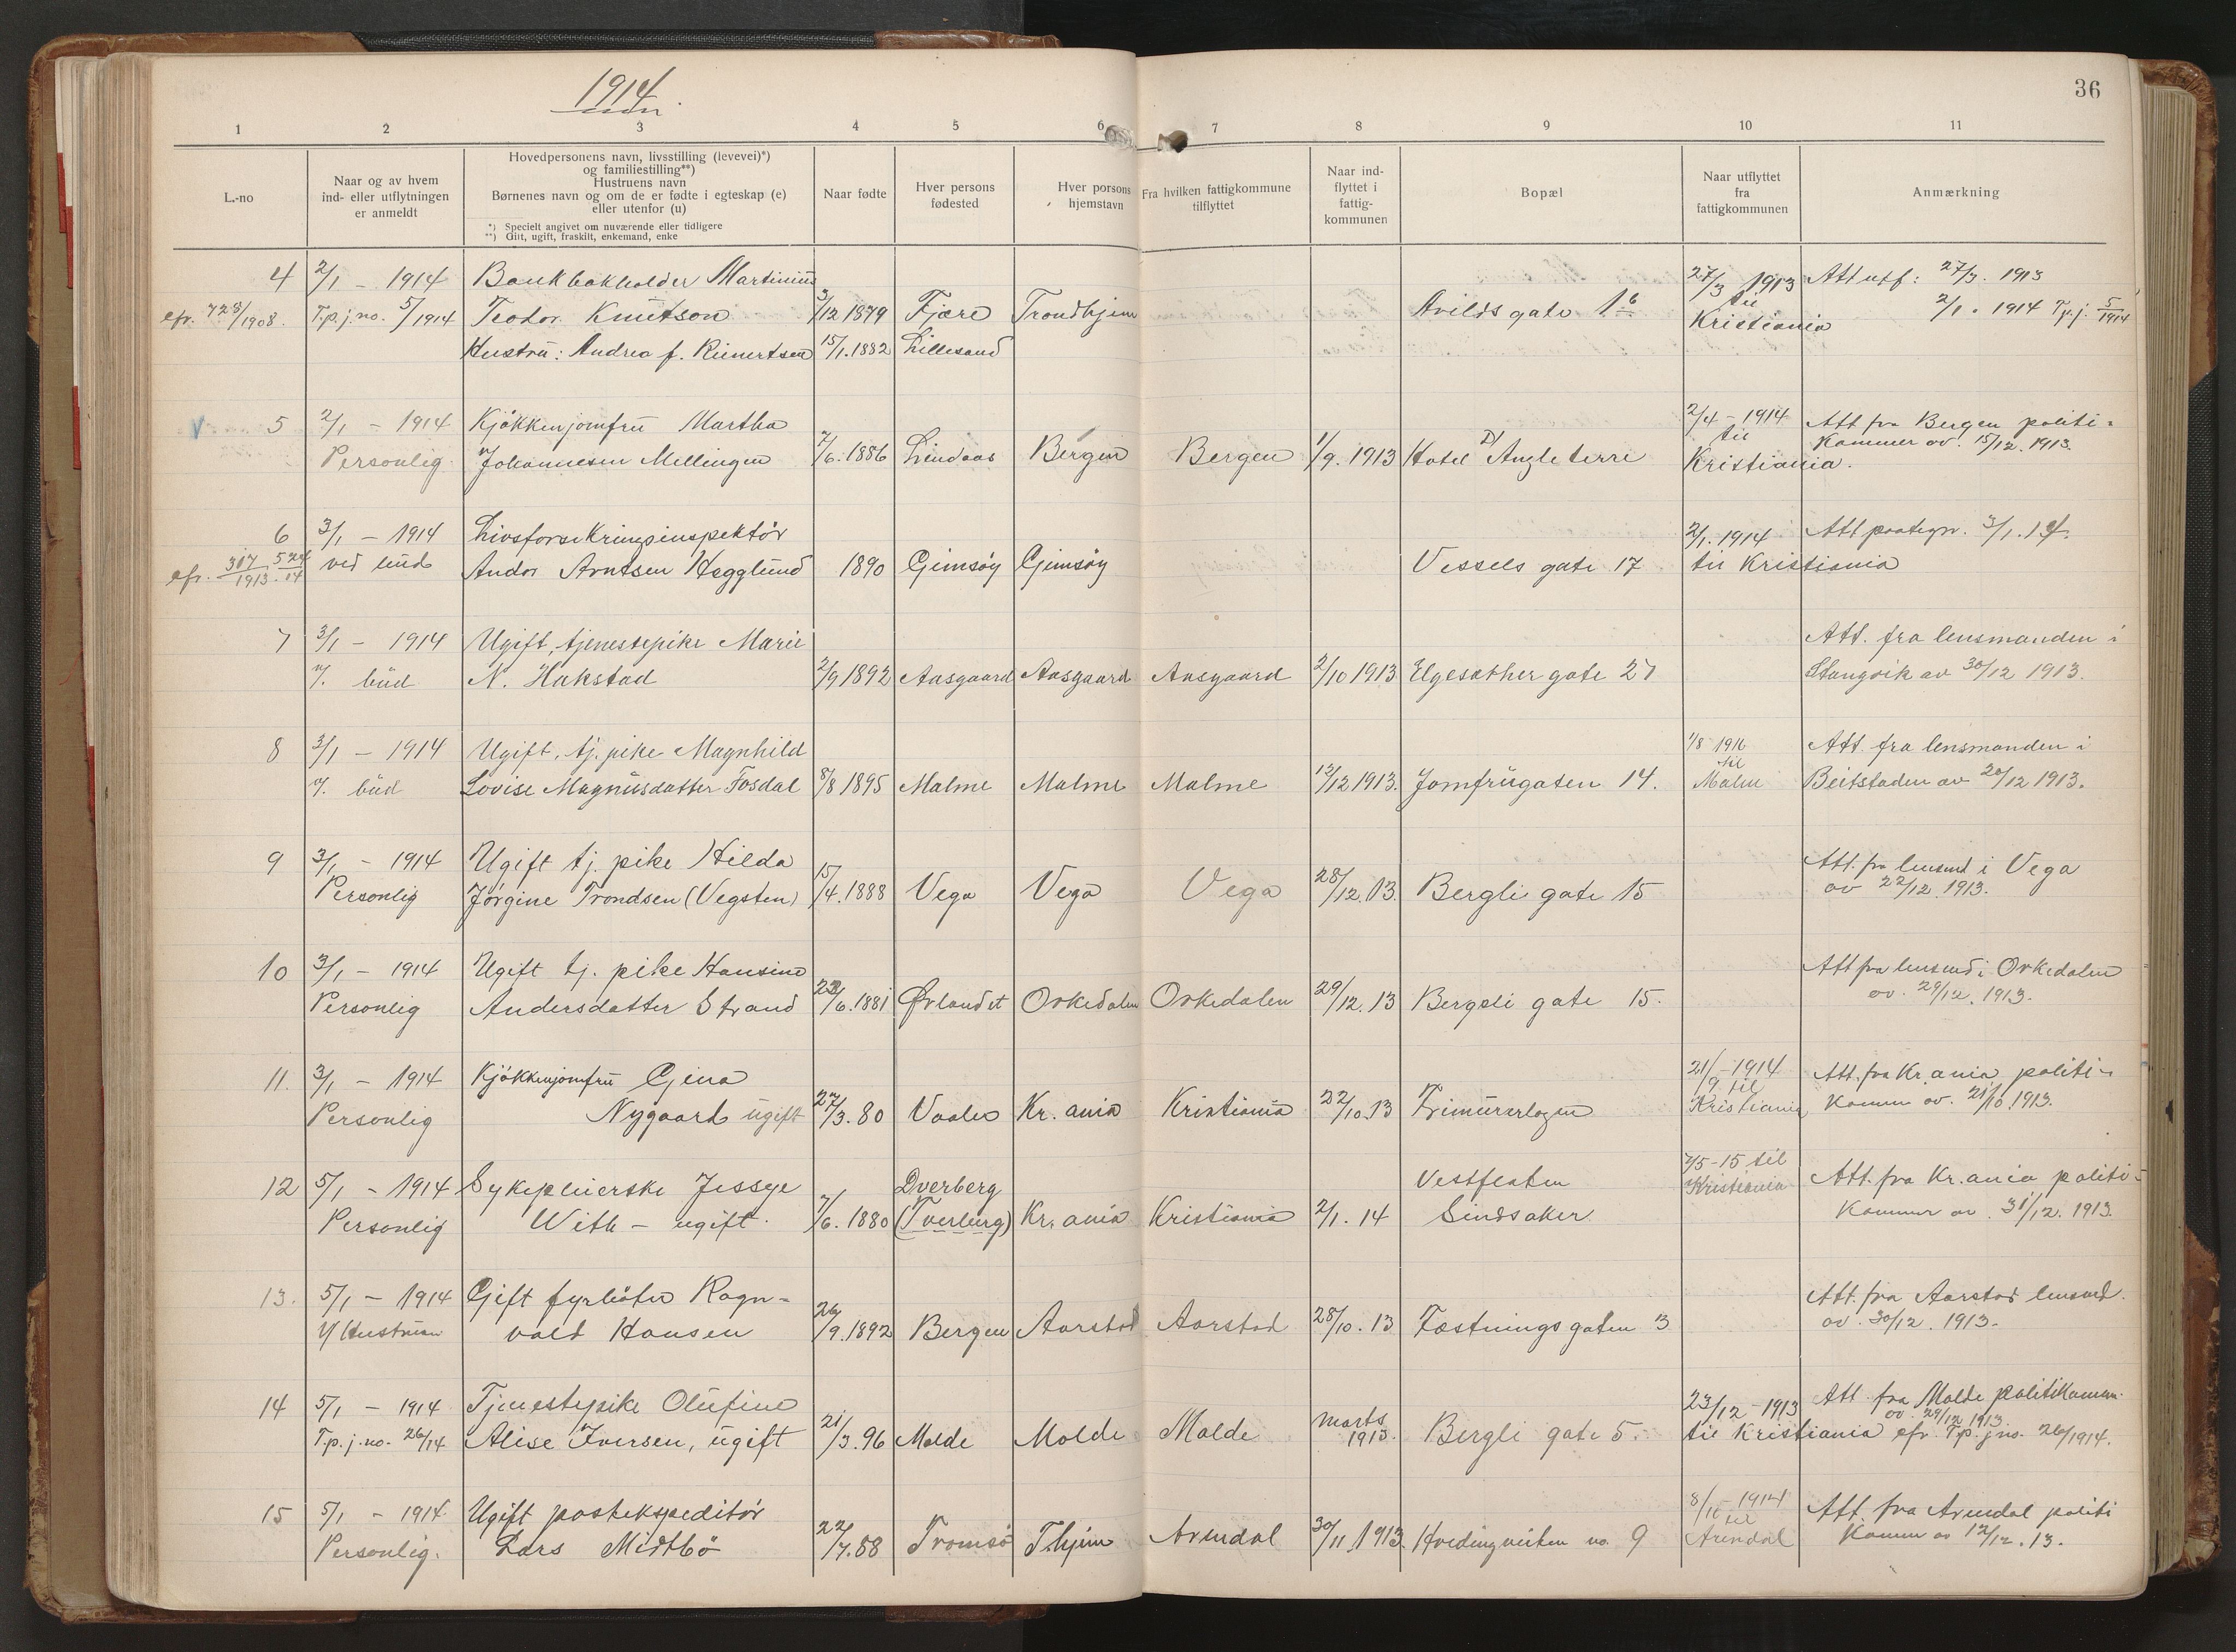 1914
36
1 2 3 4 5 6 7 8 9 10 11
L.-no
Naar og av hvem
ind- eller utflytningen
er anmeldt
Hovedpersonens navn, livsstilling (levevei)*)
og familiestilling**)
Hustruens navn
Børnenes navn og om de er fødte i egteskap (e)
eller utenfor (u)
*) Specielt angivet om nuværende eller tidligere
**) Gift, ugift, fraskilt, enkemand, enke
Naar fødte
Hver persons
fødested
Hver persons
hjemstavn
Fra hvilken fattigkommune
tilflyttet
Naar ind-
flyttet i
fattig-
kommunen
Bopæl
Naar utflyttet
fra
fattigkommunen
Anmærkning
4 2/1 - 1914 Bankbokholder Martinius 27/3 1913 Att utf: 27/3. 1913
cfr. 728/1908. T.p.j.no. 5/1914 Teodor Knutson 3/12 1879 Fjære Trondhjem Arilds gate 1b til Kristiania 2/1. 1914 T.p.j. 5/1914
Hustru: Andrea f. Reinertsen 15/1.1882 Lillesand
5 2/1 - 1914 Kjøkkenjomfru Martha 2/4 - 1914 Att fra Bergen politi-
Personlig Johannesen Mellingen 7/6.1886 Lindaas Bergen Bergen 1/9.1913 Hotel D'Angleterre til Kristiania. Kammer av 15/12.1913.
6 3/1 - 1914 Livsforsikringsinspektør 2/1.1914 Att paategn. 3/1.14.
cfr. 317/1913 524/14 ved bud Andor Arntsen Hegglund 1890 Gimsøy Gimsøy Vessels gate 17 til Kristiania
7 3/1 - 1914 Ugift, tjenestepike Marie Att. fra lensmanden i
v. bud N. Hakstad 2/9 1892 Aasgaard Aasgaard Aasgaard 2/10 1913 Elgesæther gate 27 Stangvik av 30/12 1913.
8 3/1 - 1914 Ugift, tj. pike Magnhild 1/8 1916 Att. fra lensmanden i
v. bud Lovise Magnusdatter Fosdal 8/8 1895 Malme Malme Malme 12/12 1913. Jomfrugaten 14. til Malm Beitstaden av 20/12 1913.
9 3/1 - 1914 Ugift tj. pike Hilda Att. fra lensmd i Vega
Personlig Jørgine Trondsen (Vegsten) 15/4.1888 Vega Vega Vega 28/12.13. Bergli gate 15 av 22/12.1913.
10 3/1 - 1914 Ugift tj. pike Hansine Att fra lensmd i Orkedalen
Personlig Andersdatter Strand 23/6.1881 Ørlandet Orkedalen Orkedalen 29/12.13 Bergsli gate 15. av. 29/12.1913.
11. 3/1 - 1914 Kjøkkenjomfru Gina 21/9 - 1914 Att. fra Kr.ania politi-
Personlig Nygaard ugift 27/3.80 Vaaler Kr.ania Kristiania 22/10.13 Frimurerlogen til Kristiania Kamm av. 21/10.1913.
12 5/1 - 1914 Sykepleierske Jessye Dverberg Vestfløien 7/5-15 til Att. fra Kr.ania politi-
Personlig With - ugift. 7/6.1880 (Tverberg) Kr.ania Kristiania 2/1.14 Sindsaker Kristiania Kammer av. 31/12.1913.
13. 5/1 - 1914 Gift fyrbøter Ragn- Att. fra Aarstad lensmd.
v/ Hustruen vald Hansen 26/9.1892 Bergen Aarstad Aarstad 28/10.13 Fæstningsgaten 3 av. 30/12.1913.
14 5/1 - 1914 Tjenestepike Olufine 23/12-1913 Att. fra Molde politikamm.
T.p.j.no. 26/14 Alise Iversen, ugift 21/3.96 Molde Molde Molde marts 1913. Bergli gate 5. til Kristiania av. 29/12 1913. cfr. T.p.j no. 26/1914.
15 5/1 - 1914 Ugift postekspeditør 8/11 - 1914 Att. fra Arendal politi
Personlig. Lars Midtbø 22/7.88 Tromsø Thjem Arendal 30/11.1913. Hvedingsveiten no. 9 til Arendal Kamm av 12/12.13.